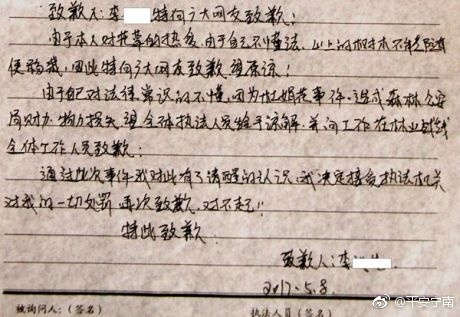 致歉人:李 特向广大网友致歉:
由于本人对花草的热爱,由于自己不懂法,以上的树木不能随
便砍栽,因此特向广大网友致歉望原谅!
由于自己对法律常识的不懂,因为杜鹃花事件,造成森林公安
局财力、物力损失望全体执法人员给予谅解,并向工作在林业战线
全体工作人员致歉:
通过此次事件我对此有了清醒的认识,我决定接受执法机关
对我的一切处罚 再次致歉,对不起!!
特此致歉
致歉人:李
2017.5.8.
被询问人:(签名) 执法人员(签名)
@平安宁南